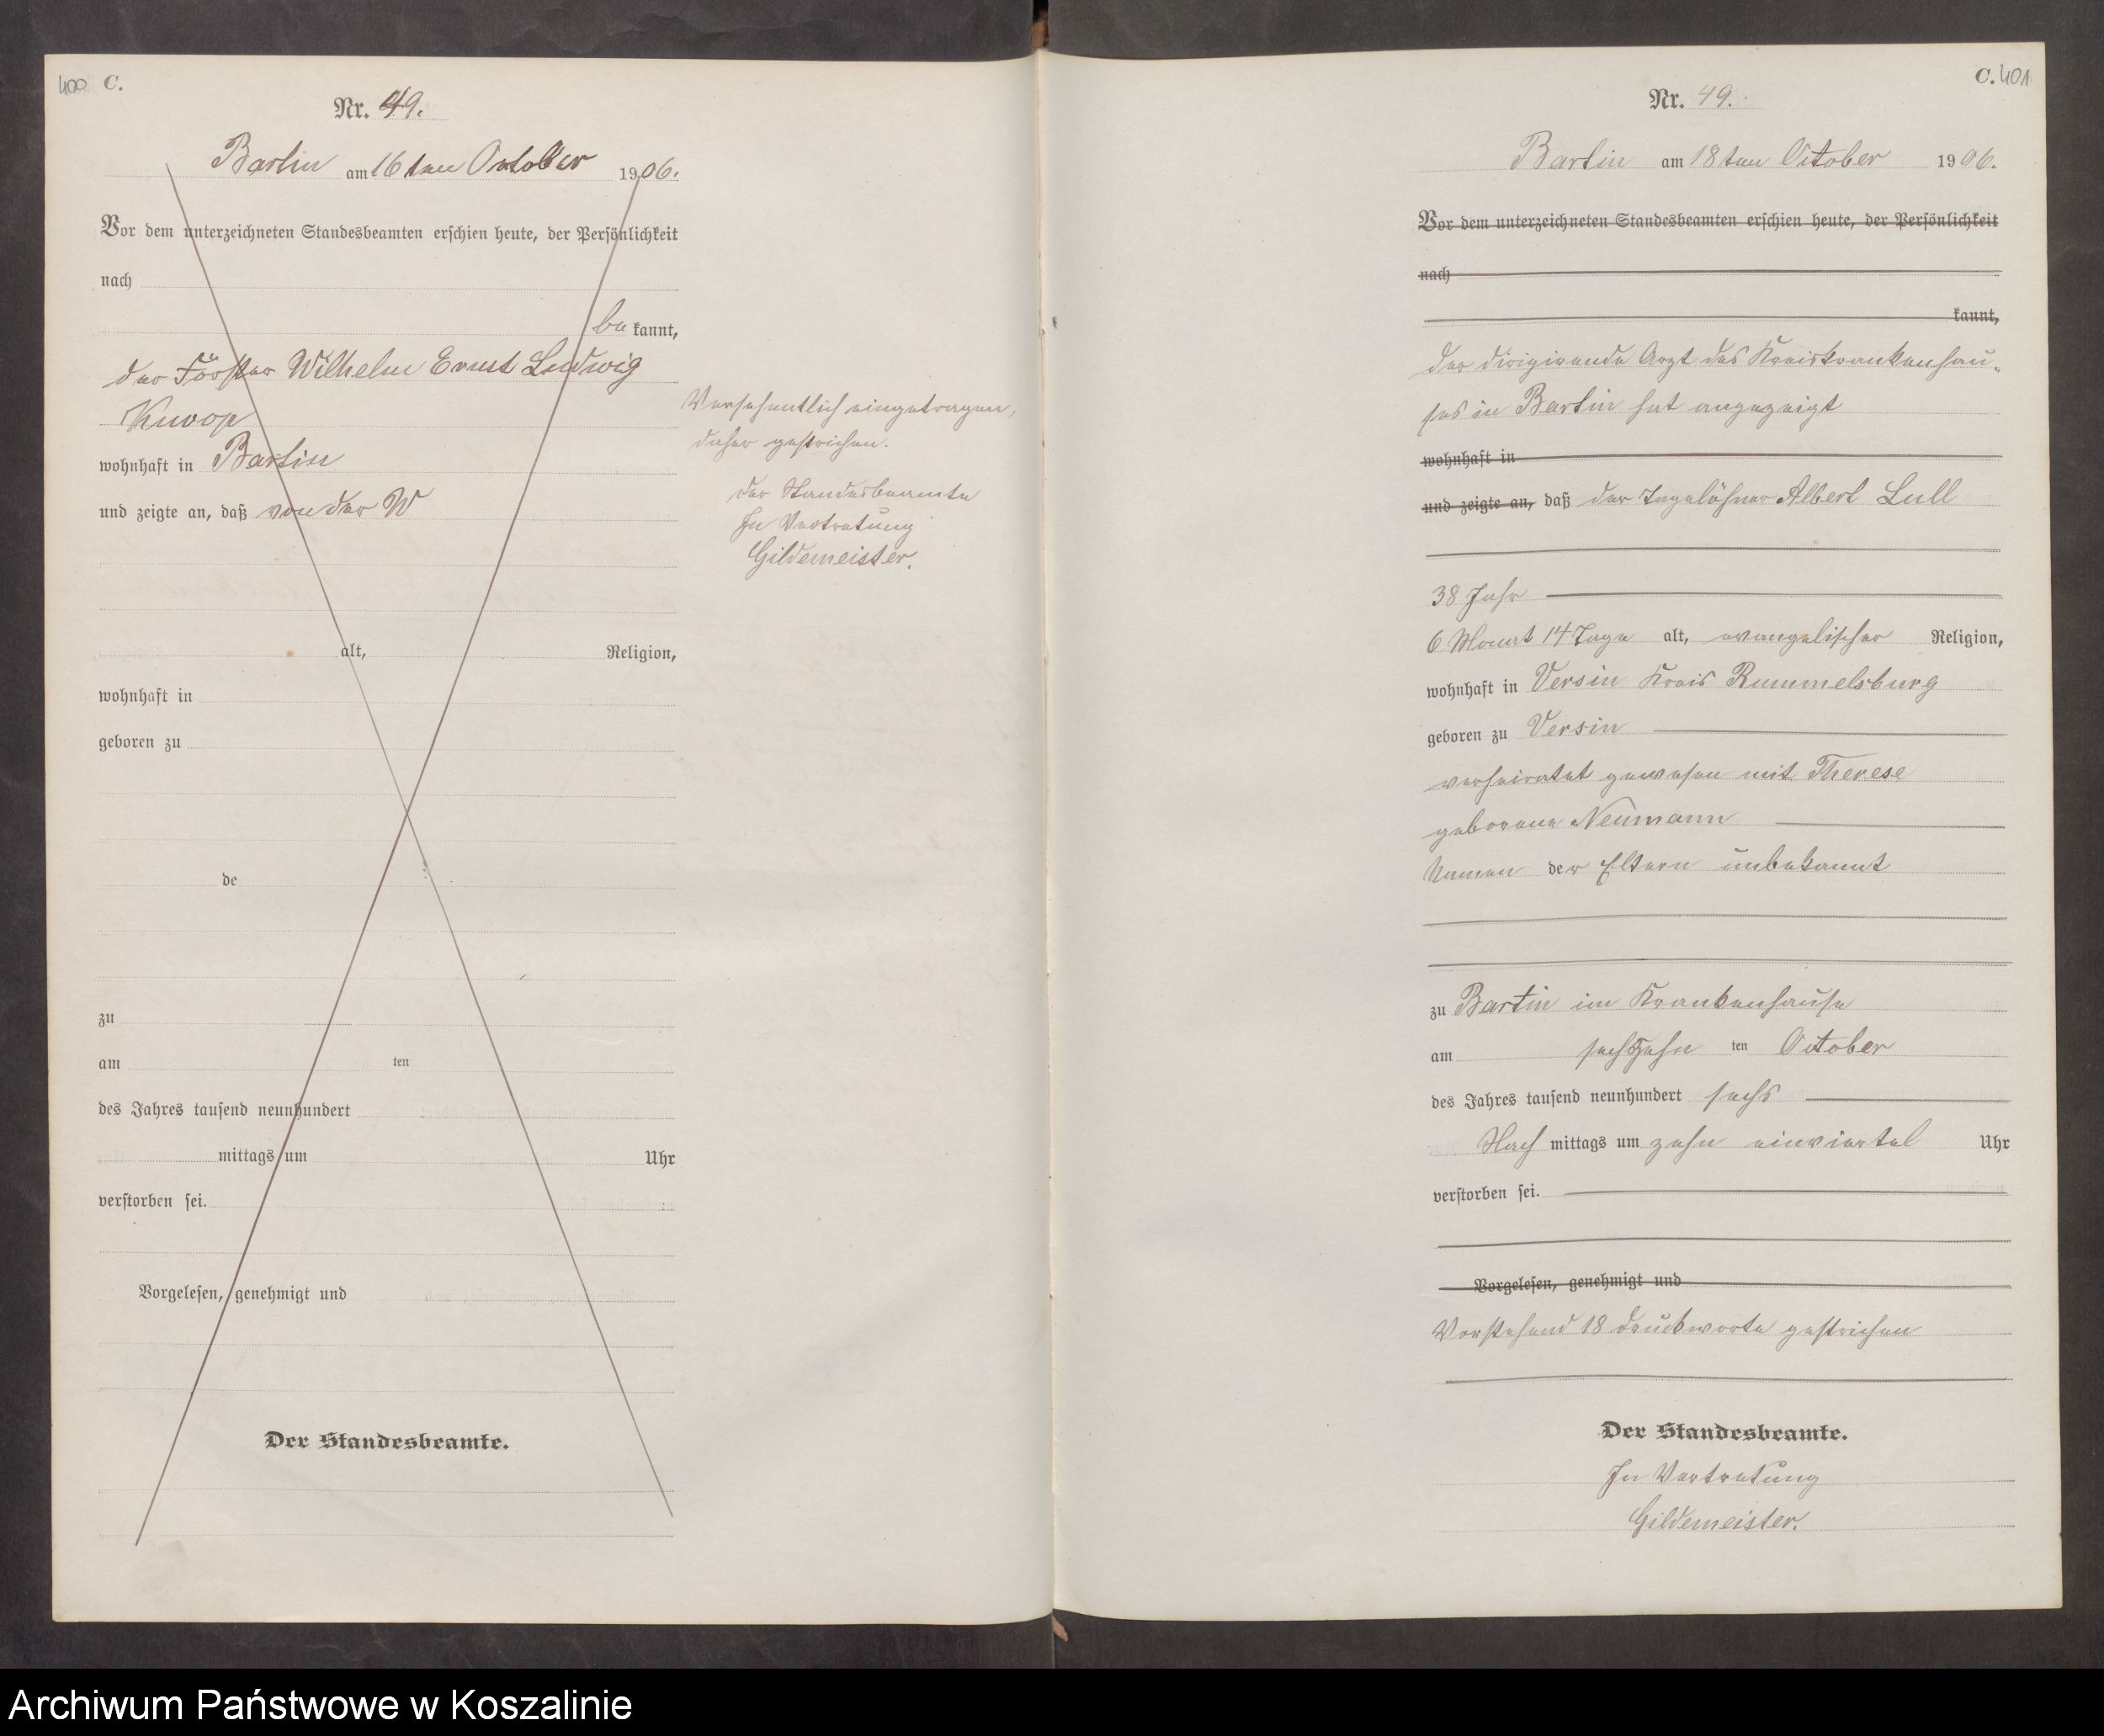 400 C.
Nr. 49.
Bartin am 16ten October 1906.
Vor dem unterzeichneten Standesbeamten erschien heute, der Persönlichkeit
nach
be kannt,
der Förster Wilhelm Ernst Ludwig
Knoop
wohnhaft in Bartin
und zeigte an, daß von der W
alt, Religion,
wohnhaft in
geboren zu
de
zu
am ten
des Jahres tausend neunhundert
mittags um Uhr
verstorben sei.
Vorgelesen, genehmigt und
Der Standesbeamte.
Versehentlich eingetragen,
daher gestrichen.
Der Standesbeamte
In Vertretung
Gildemeister.
C. 401
Nr. 49.
Bartin am 18ten October 1906.
Vor dem unterzeichneten Standesbeamten erschien heute, der Persönlichkeit
nach
kannt,
Der dirigirende Arzt des Kreiskrankenhau-
ses in Bartin hat angezeigt
wohnhaft in
und zeigte an, daß der Tagelöhner Albert Lull
38 Jahr
6 Monat 14 Tage alt, evangelischer Religion,
wohnhaft in Versin Kreis Rummelsburg
geboren zu Versin
verheiratet gewesen mit Therese
geborene Neumann
Namen der Eltern unbekannt
zu Bartin im Krankenhause
am sechszehn ten October
des Jahres tausend neunhundert sechs
Nach mittags um zehn einviertel Uhr
verstorben sei.
Vorgelesen, genehmigt und
Vorstehend 18 Druckworte gestrichen
Der Standesbeamte.
In Vertretung
Gildemeister.
Archiwum Państwowe w Koszalinie